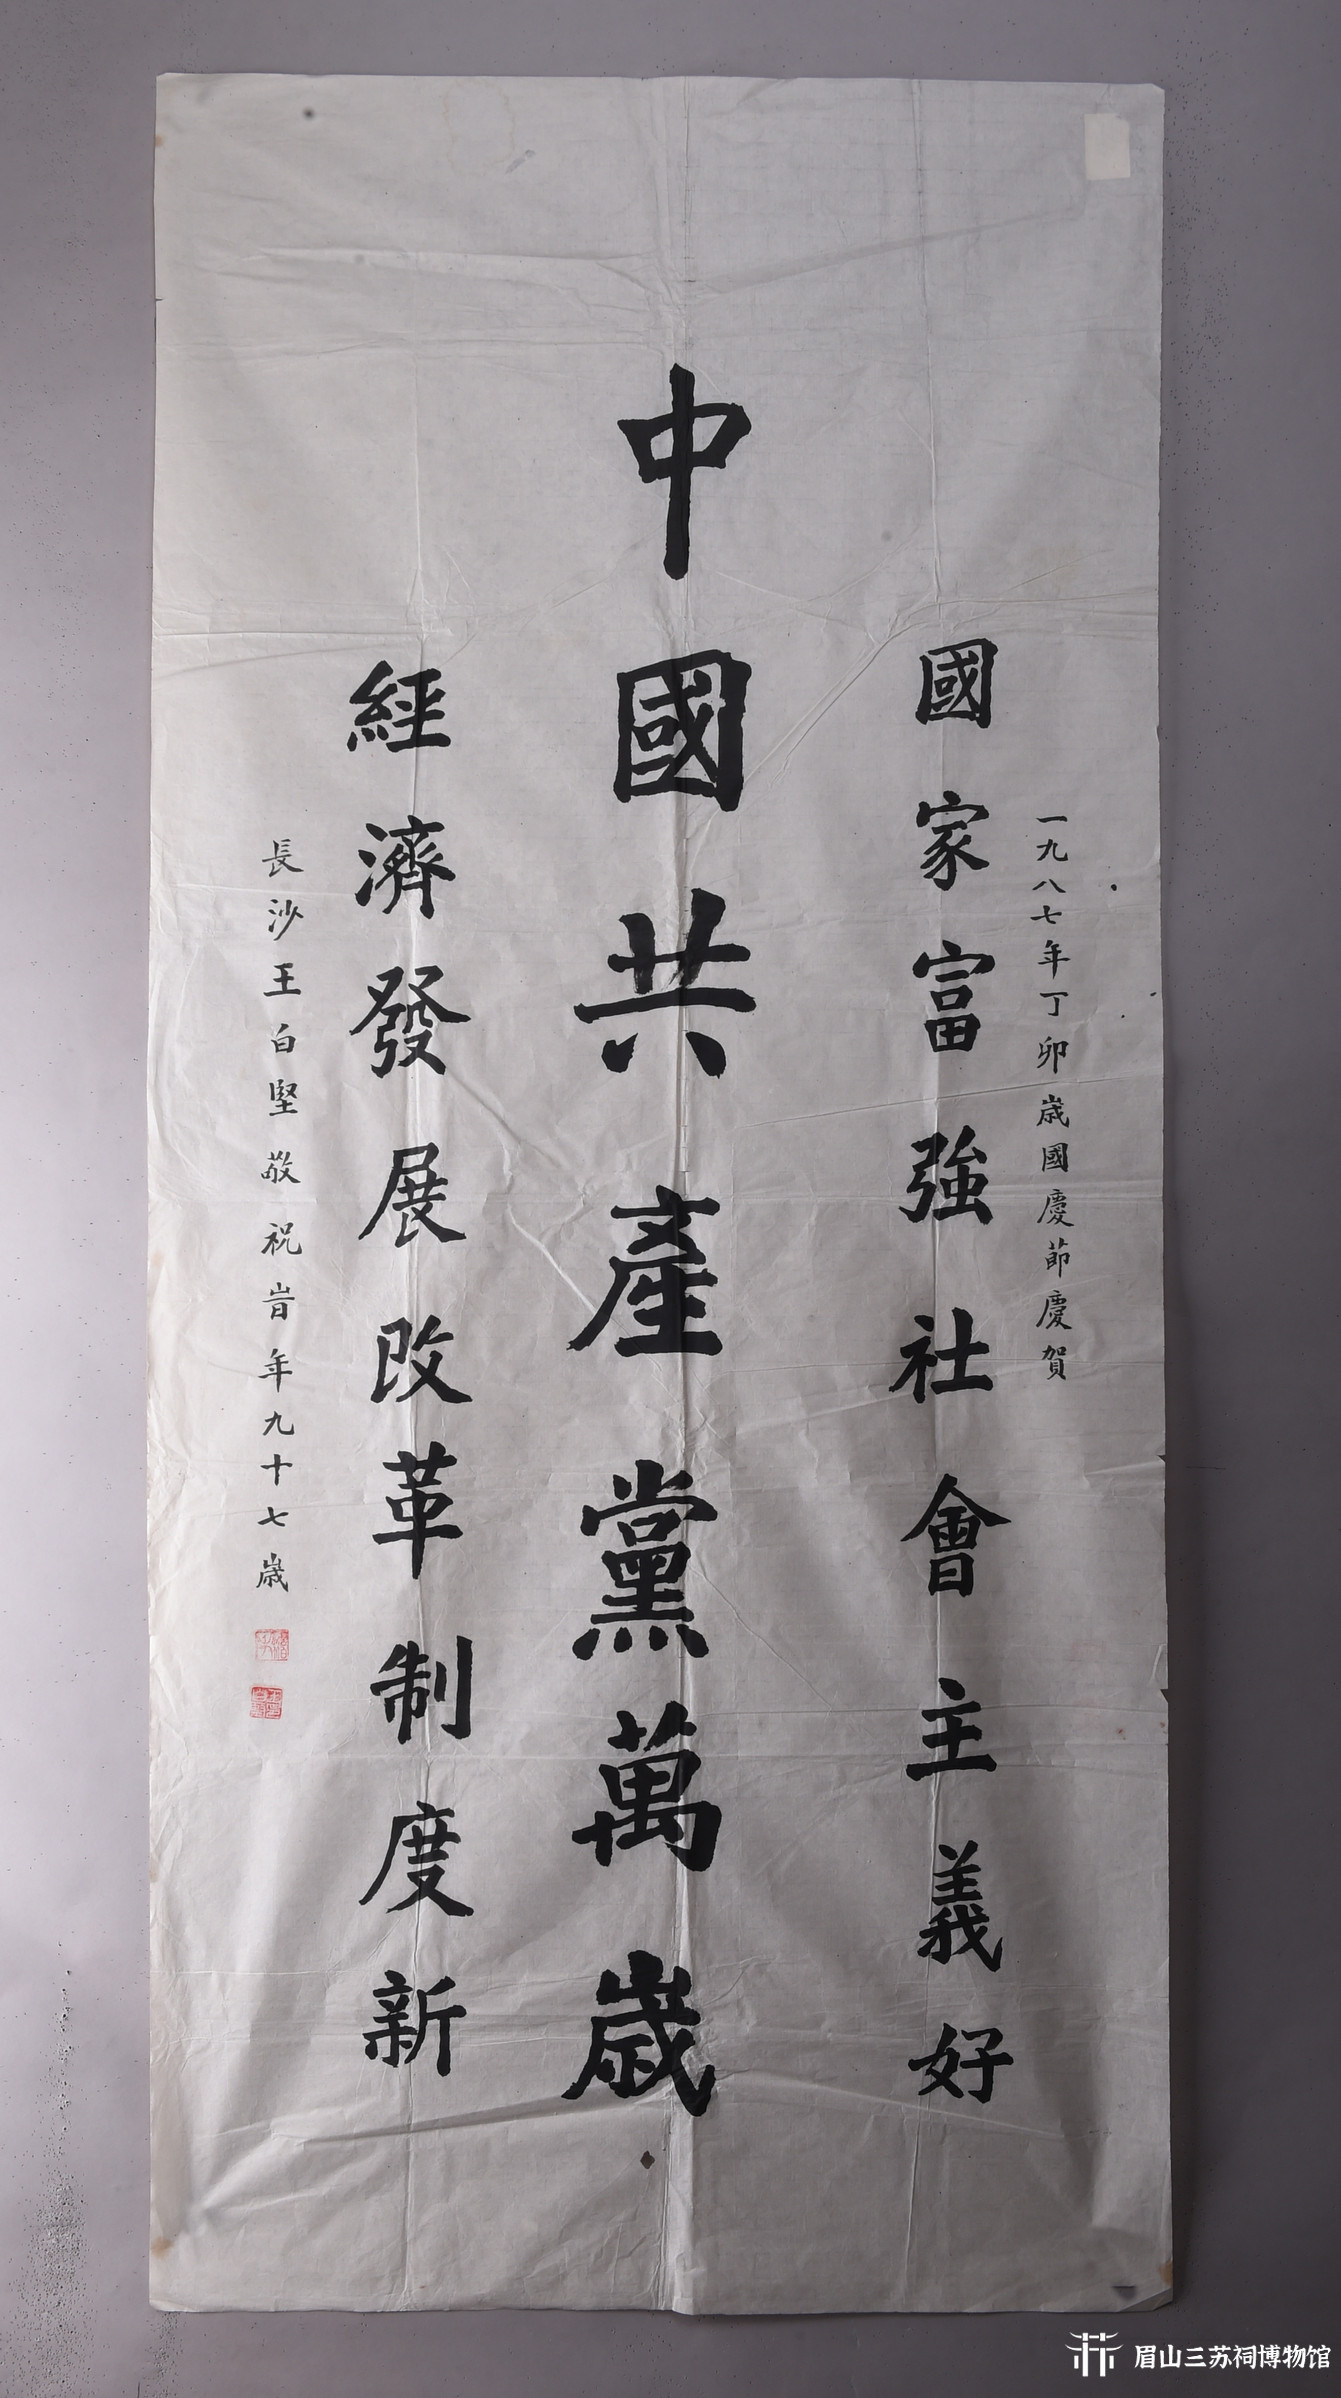 一九八七年丁卯歲國慶節慶賀
國家富強社會主義好
中國共產黨萬歲
經濟發展改革制度新
長沙王白堅敬祝旹年九十七歲
眉山三苏祠博物馆